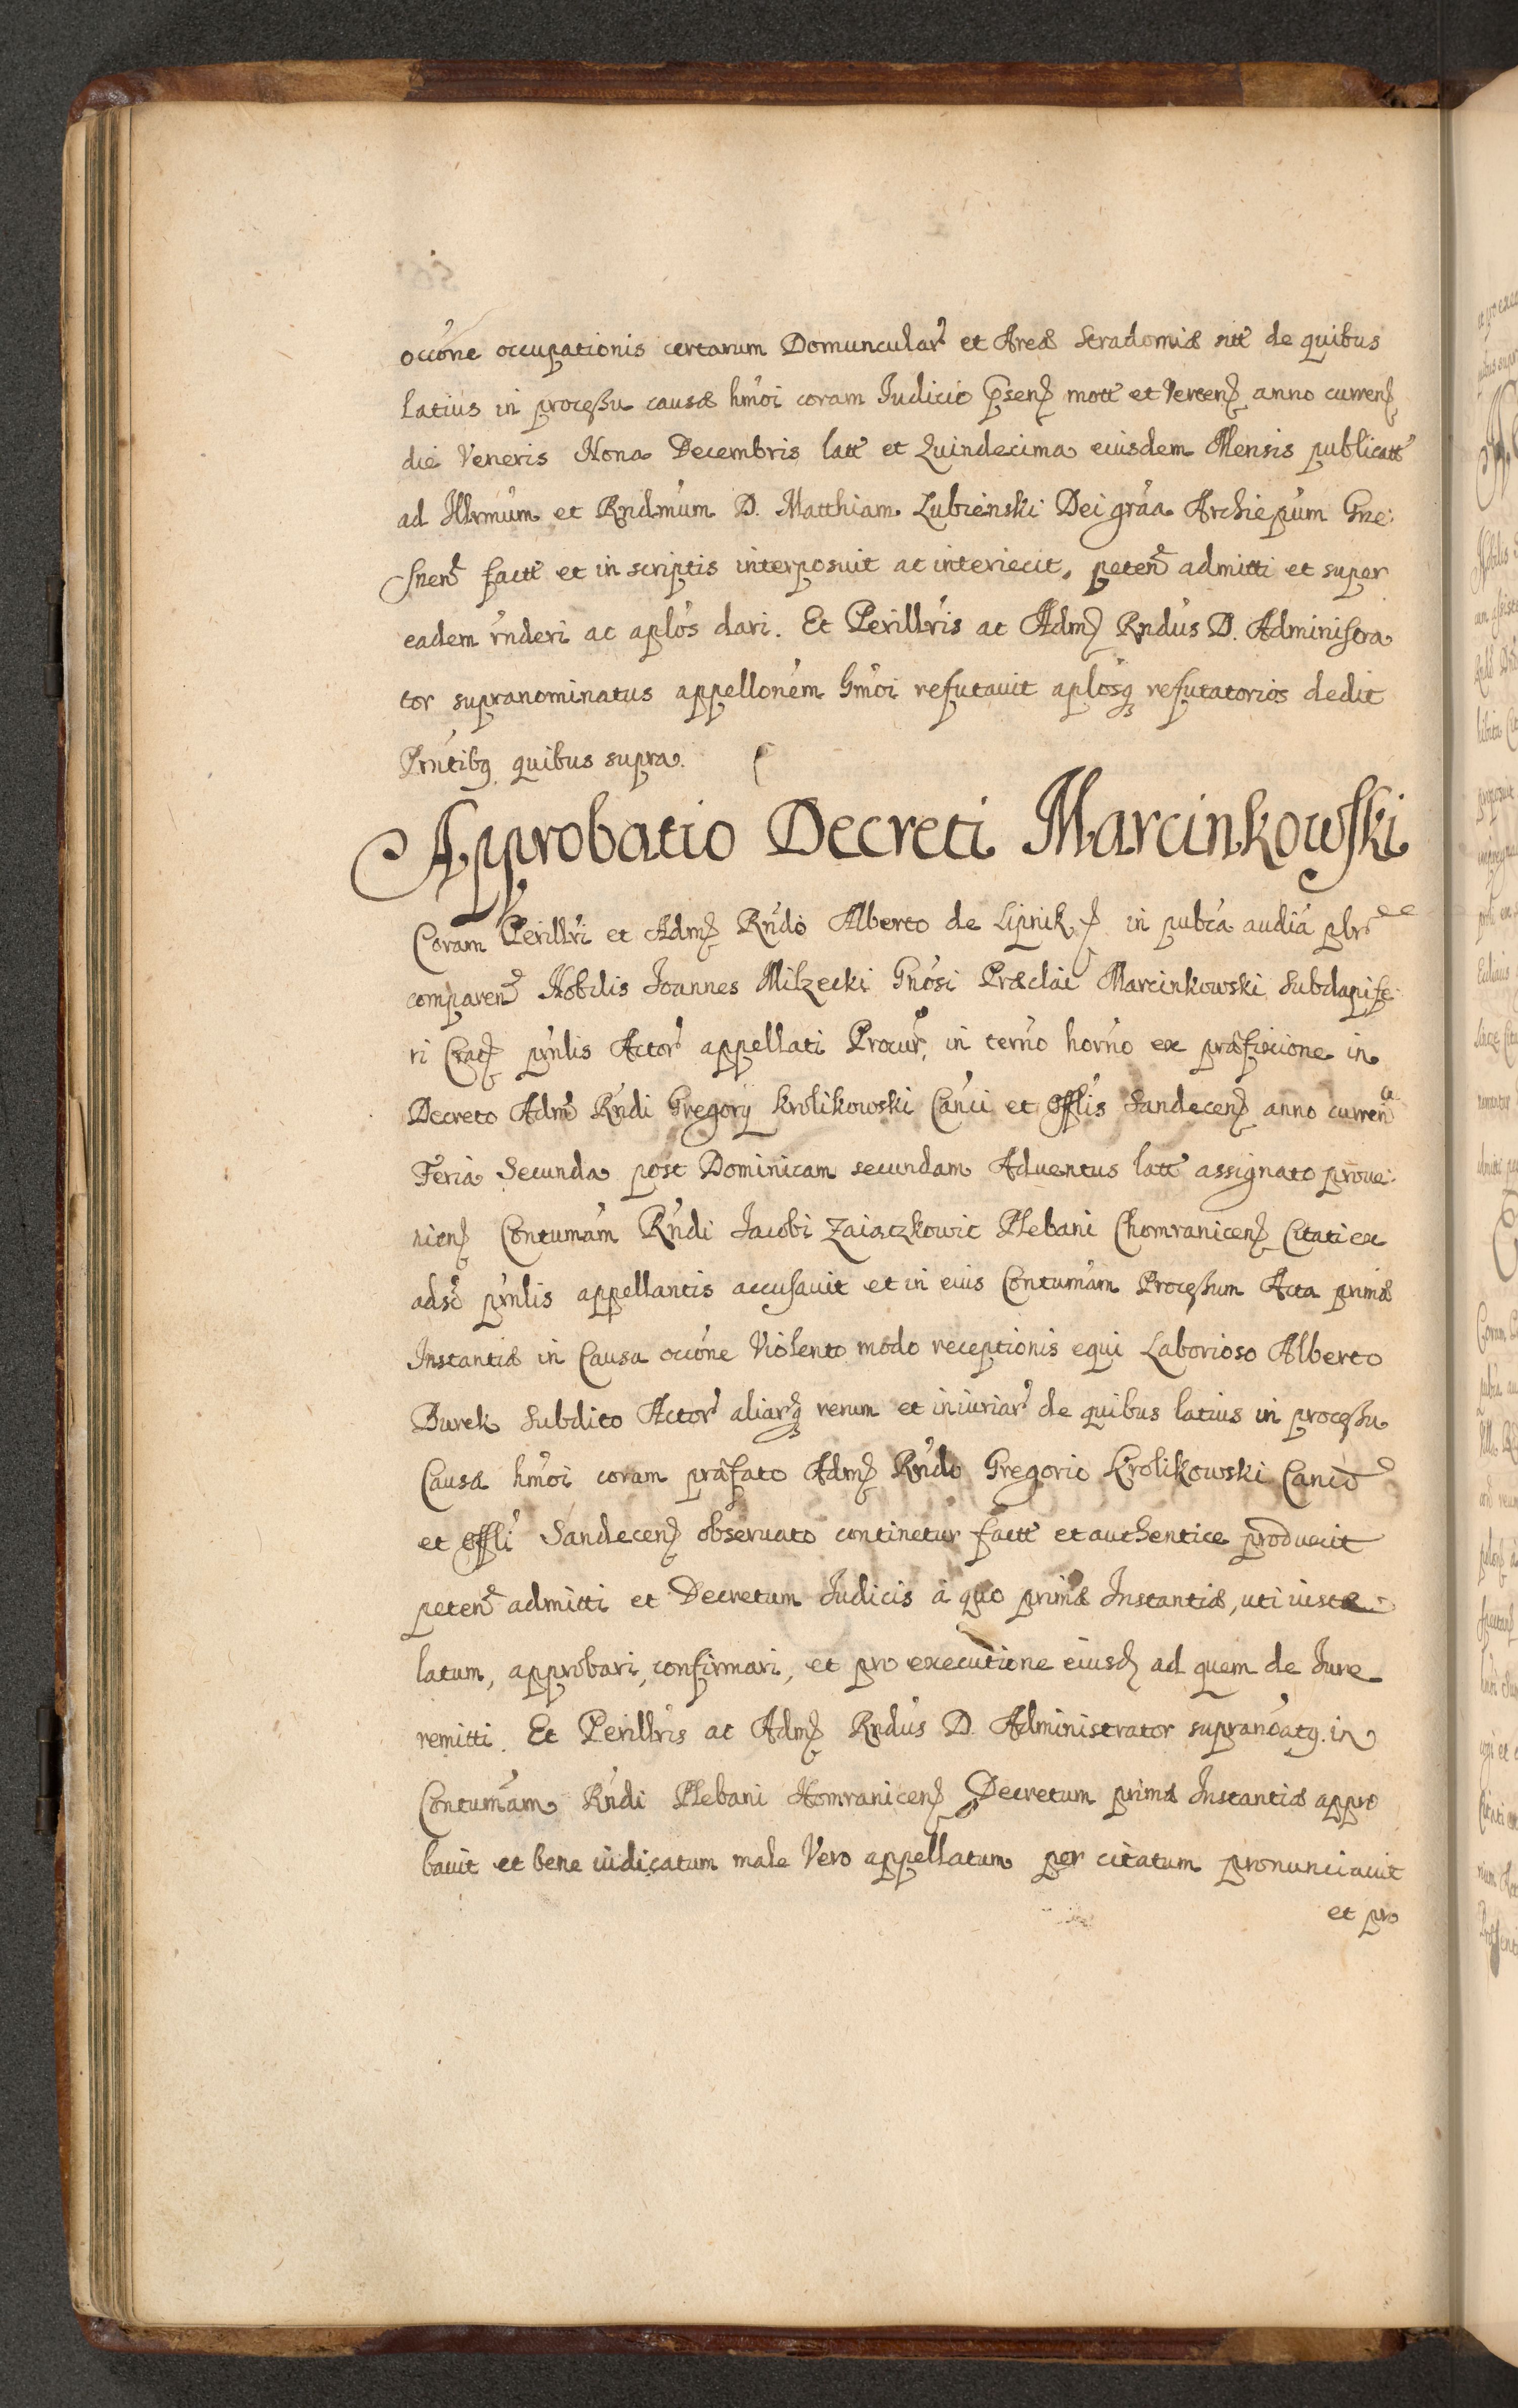 occóne occupationis certarum Domuncular et Areæ Stradomiæ sitt de quibus
latius in processu causæ hmoi coram Iudicio psen mott et Verten anno curren
die Veneris Nona Decembris latt et Quindecima eiusdem Mensis publicatt
ad Illrmum et Rndmum D. Matthiam Lubienski Dei gráa Archiepum Gne:
snen factt et in scriptis interposuit ac interiecit, peten admitti et super
eadem rnderi ac aplos dari. Et Perillris ac Adm Rndus D. Administra
tor supranominatus appellonem hmoi refutauit aplosq refutatorios dedit
Pntibq quibus supra.
Approbatio Decreti Marcinkowski
Coram Perillri et Adm Rndo Alberto de Lipnik in pubca audia plr
comparen Nobilis Ioannes Milzecki Gnosi Præclai Marcinkowski Subdapife
ri Crac prnlis Actor appellati Procur, in termo horno ex præfixione in
Decreto Adm Rndi Gregorij Krolikowski Canci et Offlis Sandecen anno curren
Feria Secunda post Dominicam secundam Aduentus latt assignato proue:
nien Contumam Rndi Iacobi Zaiaczkowic Plebani Chomranicen Citati ex
adso prnlis appellantis accusauit et in eius Contumam Processum Acta primæ
Instantiæ in Causa occóne Violento modo receptionis equi Laborioso Alberto
Burek Subdito Actor aliarq rerum et iniuriar de quibus latius in processu
Causæ hmoi coram præfato Adm Rndo Gregorio Krolikowski Canco
et Offli Sandecen obseruato continetur factt et authentice produxit
peten admitti et Decretum Iudicis à quo primæ Instantiæ, uti iuste
latum, approbari, confirmari, et pro executione eiusd ad quem de Iure
remitti. Et Perillris ac Adm Rndus D. Administrator supranoatq. in
Contumam Rndi Plebani Homranicen Decretum primæ Instantiæ appro
bauit et bene iudicatum male Vero appellatum per citatum pronunciauit
et pro